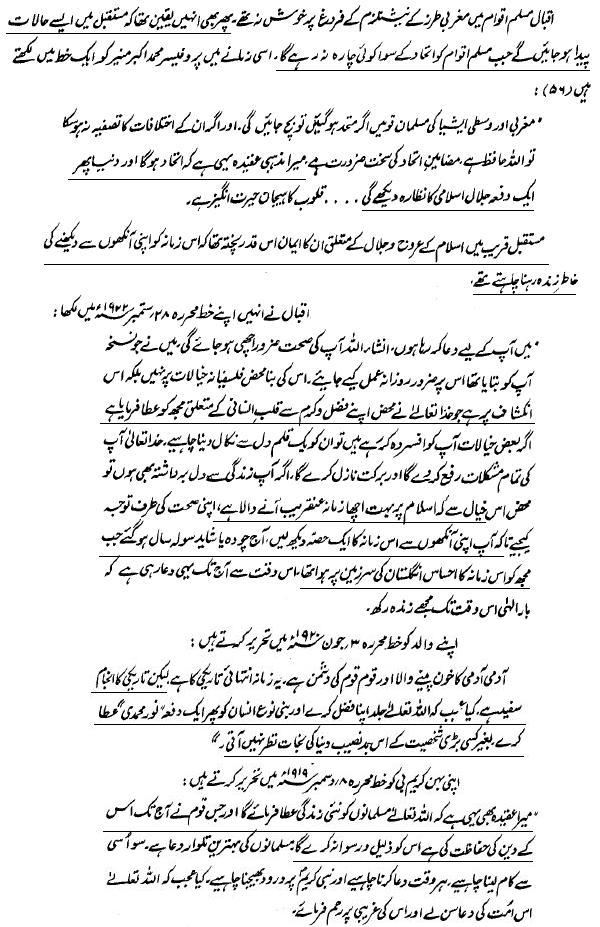 اقبال مسلم اقوام میں مغربی طرز کے نیشنلزم کے فروغ پر خوش نہ تھے۔ پھر بھی انہیں یقین تھا کہ مستقبل میں ایسے حالات
پیدا ہو جائیں گے جب مسلم اقوام کو اتحاد کے سوا کوئی چارہ نہ رہے گا۔ اسی زمانے میں پروفیسر محمد اکبر منیر کو ایک خط میں لکھتے
ہیں (۵۶):
"مغربی اور وسطی ایشیا کی مسلمان قومیں اگر متحد ہو گئیں تو بچ جائیں گی۔ اور اگر ان کے اختلافات کا تصفیہ نہ ہو سکا
تو اللہ حافظ ہے۔ مضامین اتحاد کی سخت ضرورت ہے۔ میرا مذہبی عقیدہ یہی ہے کہ اتحاد ہوگا اور دنیا پھر
ایک دفعہ جلال اسلامی کا نظارہ دیکھے گی .... قلوب کا ہیجان حیرت انگیز ہے۔
مستقبل قریب میں اسلام کے عروج و جلال کے متعلق ان کا ایمان اس قدر پختہ تھا کہ اس زمانہ کو اپنی آنکھوں سے دیکھنے کی
خاطر زندہ رہنا چاہتے تھے۔
اقبال نے انہیں اپنے خط محررہ ۲۸ ستمبر ۱۹۲۲ء میں لکھا:
"میں آپ کے لیے دعا کر رہا ہوں۔ انشاء اللہ آپ کی صحت ضرور اچھی ہو جائے گی۔ میں نے جو نسخہ
آپ کو بتایا تھا اس پر ضرور روزانہ عمل کیے جائیے۔ اس کی بنا محض فلسفیانہ خیالات پر نہیں بلکہ اس
انکشاف پر ہے جو خدا تعالیٰ نے محض اپنے فضل و کرم سے قلب انسانی کے متعلق مجھ کو عطا فرمایا ہے
اگر بعض خیالات آپ کو افسردہ کر رہے ہیں تو ان کو یک قلم دل سے نکال دینا چاہیے۔ خدا تعالیٰ آپ
کی تمام مشکلات رفع کر دے گا اور برکت نازل کرے گا۔ اگر آپ زندگی سے دل برداشتہ بھی ہوں تو
محض اس خیال سے کہ اسلام پر بہت اچھا زمانہ عنقریب آنے والا ہے، اپنی صحت کی طرف توجہ
کیجیے تاکہ آپ اپنی آنکھوں سے اس زمانہ کا ایک حصہ دیکھ لیں۔ آج چودہ یا شاید سولہ سال ہو گئے جب
مجھ کو اس زمانہ کا احساس انگلستان کی سرزمین پر ہوا تھا۔ اس وقت سے آج تک یہی دعا رہی ہے کہ
بار الٰہی اس وقت تک مجھے زندہ رکھ۔
اپنے والد کو خط محررہ ۳ جون ۱۹۲۰ء میں تحریر کرتے ہیں:
آدمی آدمی کا خون پینے والا اور قوم قوم کی دشمن ہے۔ یہ زمانہ انتہائی تاریکی کا ہے لیکن تاریکی کا انجام
سفید ہے۔ کیا عجب کہ اللہ تعالیٰ جلد اپنا فضل کرے اور بنی نوع انسان کو پھر ایک دفعہ "نور محمدی" عطا
کرے۔ بغیر کسی بڑی شخصیت کے اس بدنصیب دنیا کی نجات نظر نہیں آتی"
اپنی بہن کریم بی کو خط محررہ ۸ دسمبر ۱۹۱۹ء میں تحریر کرتے ہیں:
"میرا عقیدہ بھی یہی ہے کہ اللہ تعالیٰ مسلمانوں کو نئی زندگی عطا فرمائے گا اور جس قوم نے آج تک اس
کے دین کی حفاظت کی ہے اس کو ذلیل و رسوا نہ کرے گا۔ مسلمانوں کی بہترین تلوار دعا ہے۔ سو اسی
سے کام لینا چاہیے۔ ہر وقت دعا کرنا چاہیے اور نبی کریمؐ پر درود بھیجنا چاہیے۔ کیا عجب کہ اللہ تعالیٰ
اس امت کی دعا سن لے اور اس کی غریبی پر رحم فرمائے۔